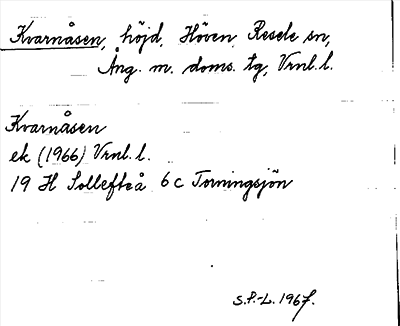 Kvarnåsen, höjd, Höven, Resele sn,
Ång. m. doms. tg, Vrnl. l.
Kvarnåsen
ek (1966) Vrnl. l.
19 H Sollefteå 6 c Torningsjön
S.P.-L. 1967.